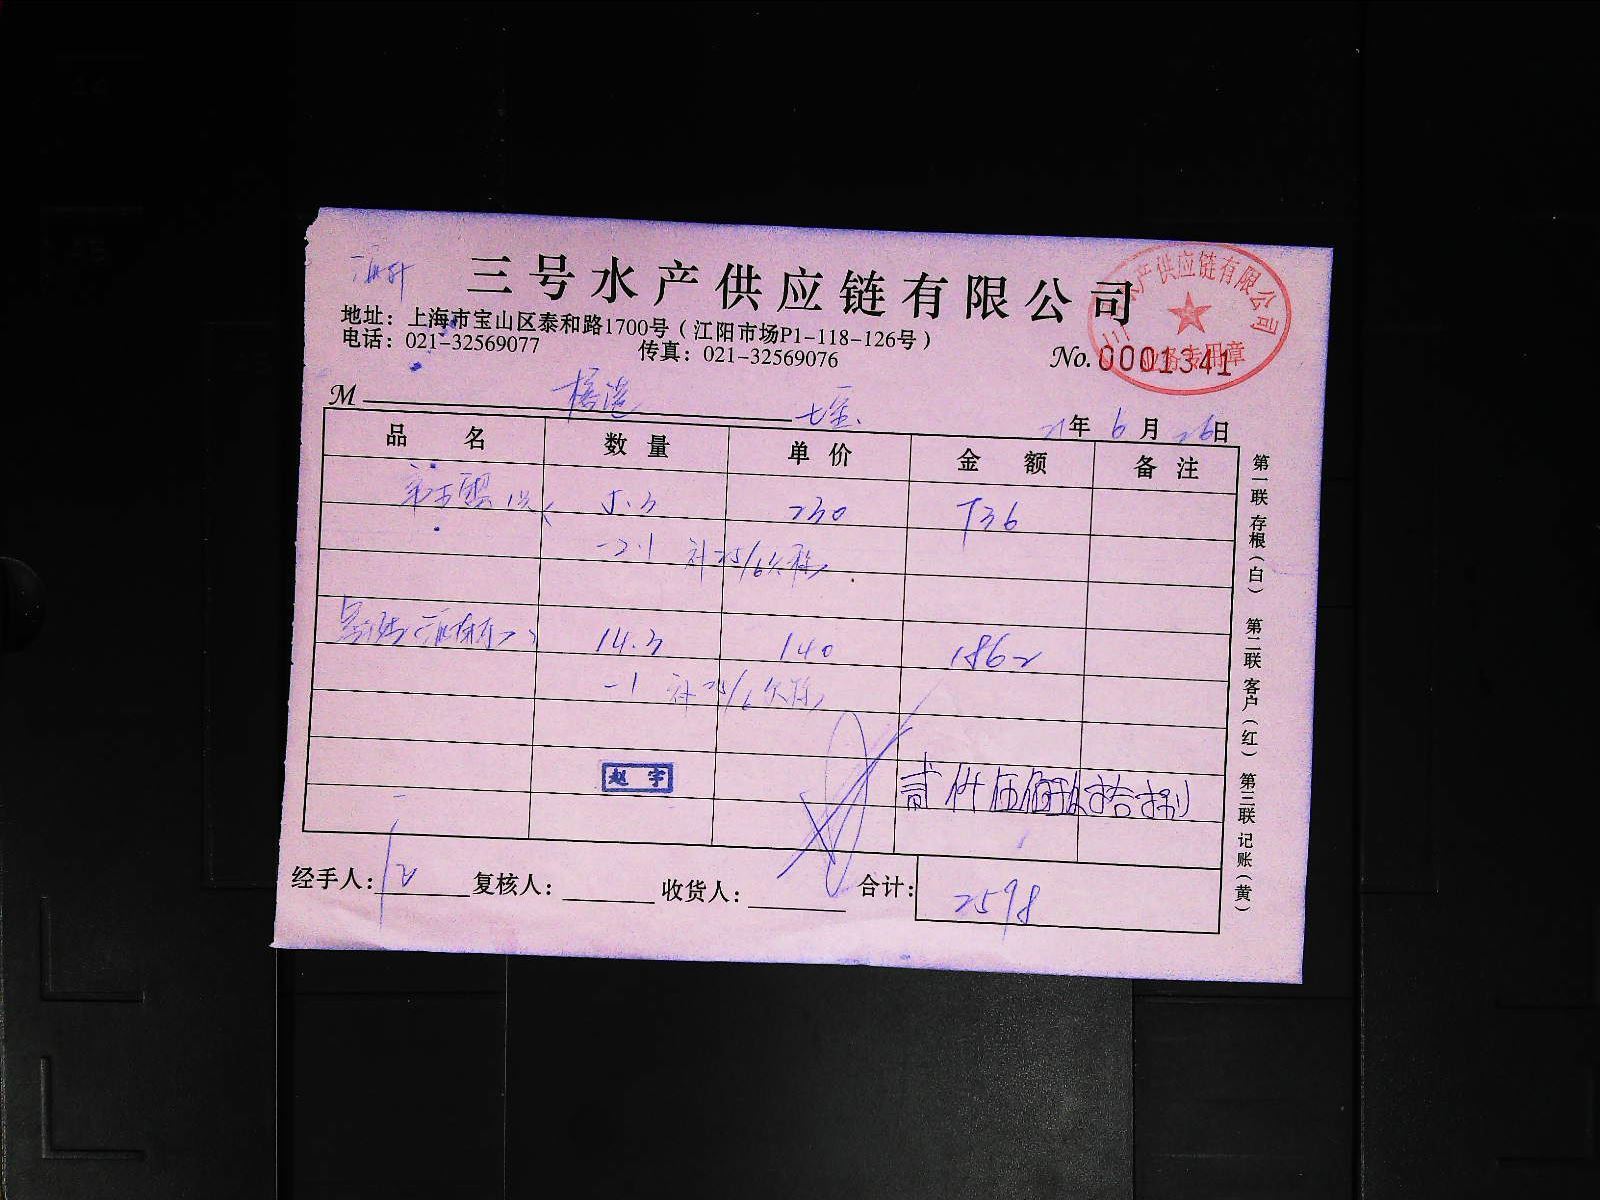 三号水产供应链有限公司
水产供应链有限公司
业务专用章
地址：上海市宝山区泰和路1700号（江阳市场P1-118-126号）
电话：021-32569077 传真：021-32569076
No. 0001341
M
21年 6月 26日
品名 数量 单价 金额 备注
5.3 230 736
-2.1 补25/6欠称
14.3 140 1862
-1 补25/6欠称
赵宇
贰仟伍佰玖拾捌
经手人： 复核人： 收货人： 合计： 2598
第一联 存根（白） 第二联 客户（红） 第三联 记账（黄）